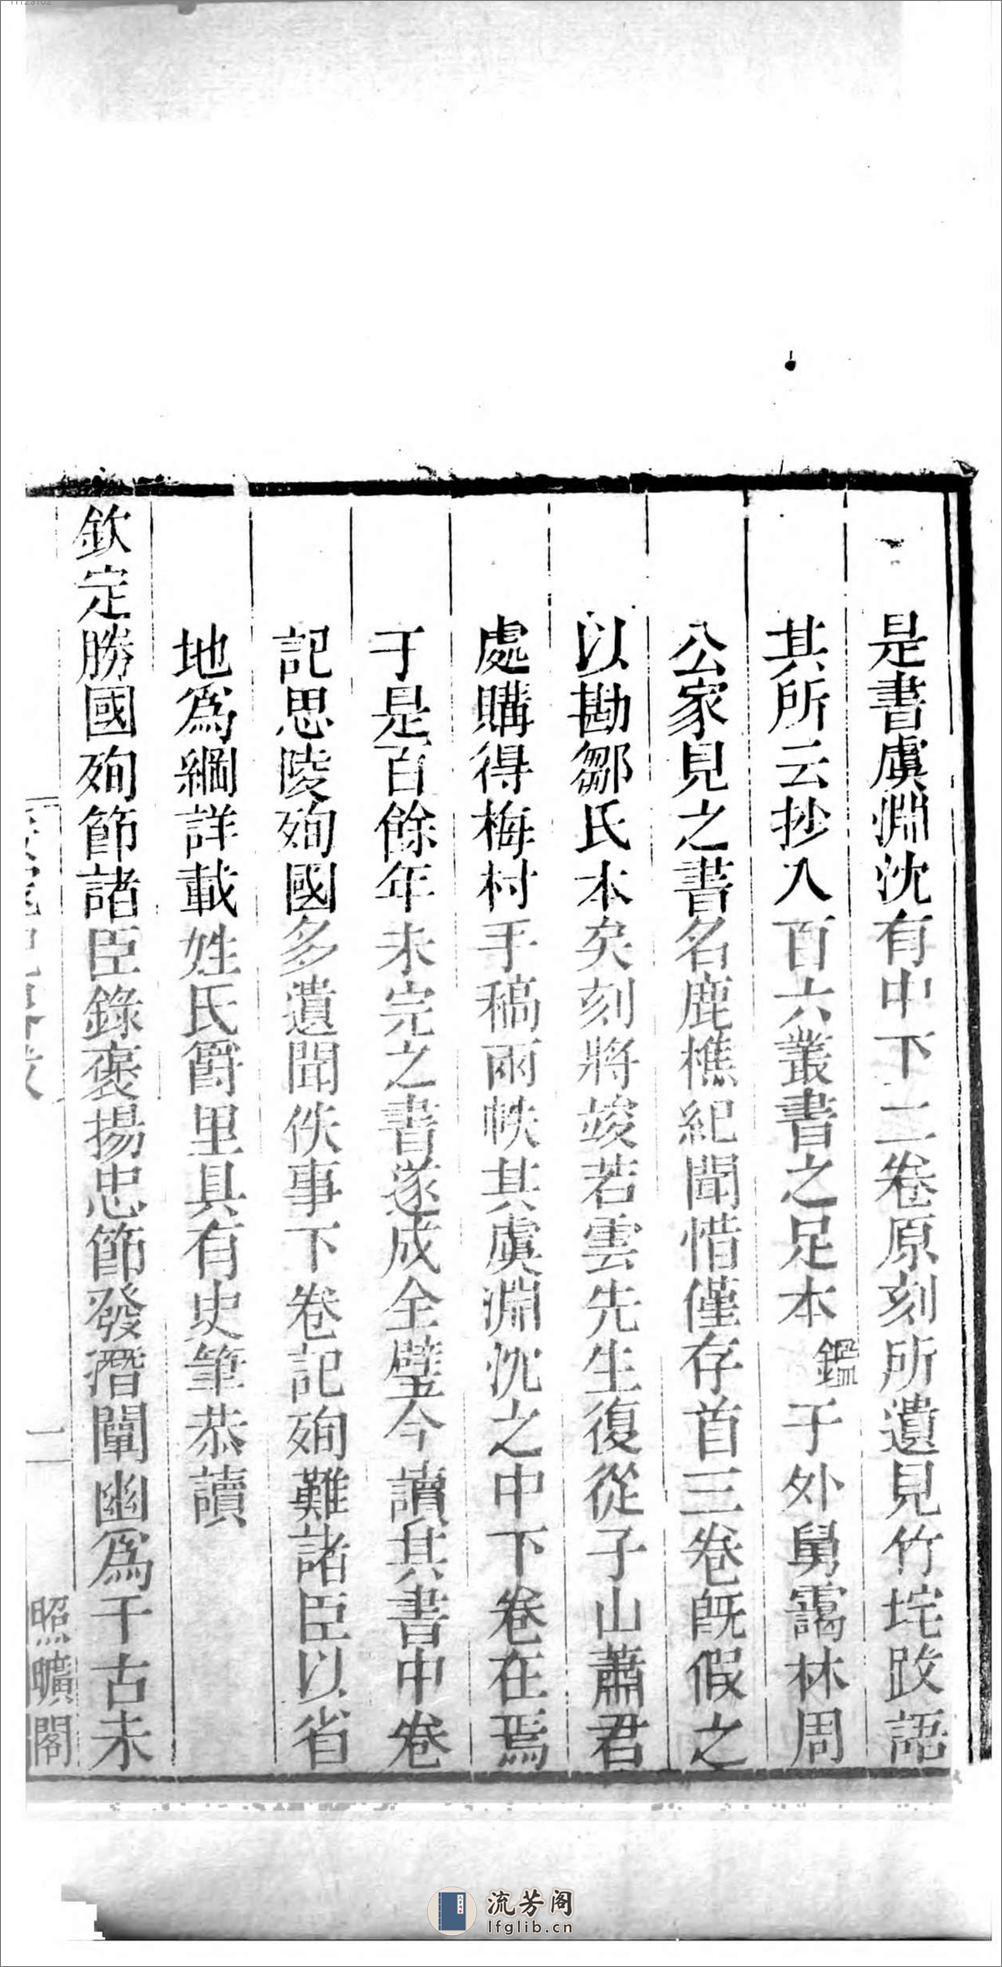 是書虞淵沈有中下二卷原刻所遺見竹垞跋語
其所云抄入百六叢書之足本鑑于外舅靄林周
公家見之書名鹿樵紀聞惜僅存首三卷既假之
以勘鄒氏本矣刻將竣若雲先生復從子山蕭君
處購得梅村手稿兩帙其虞淵沈之中下卷在焉
于是百餘年未完之書遂成全璧今讀其書中卷
記思陵殉國多遺聞佚事下卷記殉難諸臣以省
地爲綱詳載姓氏爵里具有史筆恭讀
欽定勝國殉節諸臣錄褒揚忠節發潛闡幽爲千古未
二
照曠閣
流芳阁
lfglib.cn